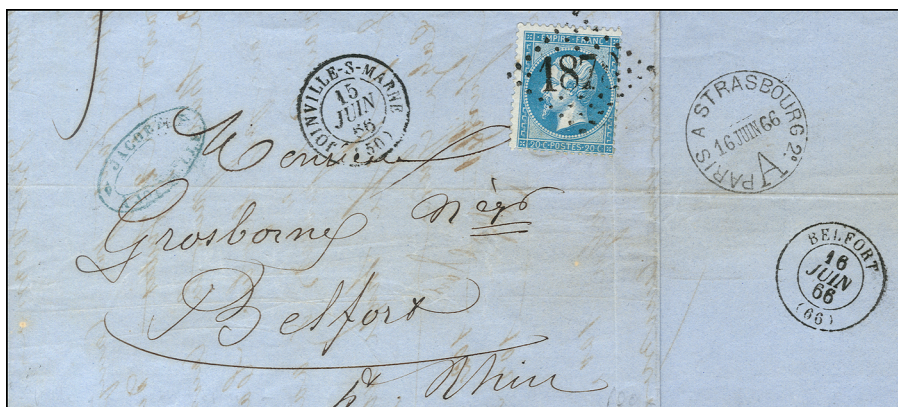 JOINVILLE-S-MARNE
15
JUIN
66
(50)
EMPIRE FRANC
187
20 C POSTES 20 C
PARIS A STRASBOURG 2°
16 JUIN 66
A
BELFORT
16
JUIN
66
(66)
Monsieur
Grosborne Négt
Belfort
ht Rhin